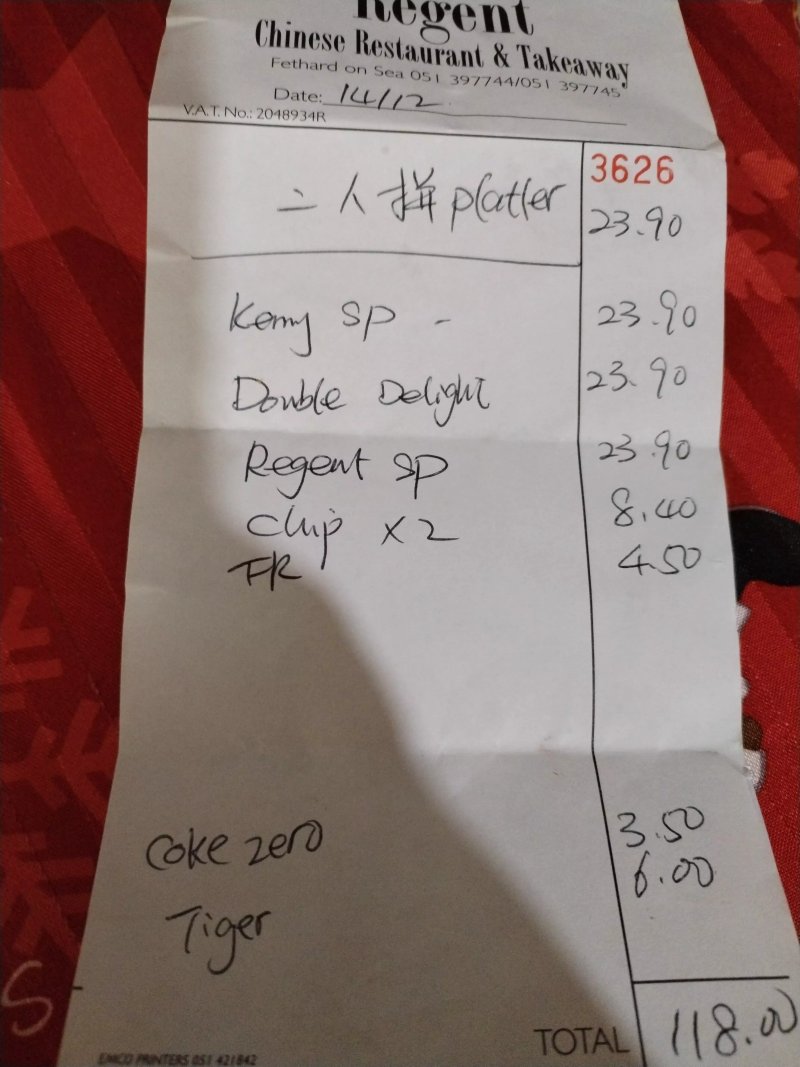 Regent
Chinese Restaurant & Takeaway
Fethard on Sea 051 397744/051 397745
Date: 14/12
V.A.T. No.: 2048934R
3626
二人拼 platter 23.90
SP - 23.90
Double Delight 23.90
Regent SP 23.90
Chip X2 8.40
FR 4.50
Coke zero 3.50
Tiger 6.00
TOTAL 118.00
EMCO PRINTERS 051 421842